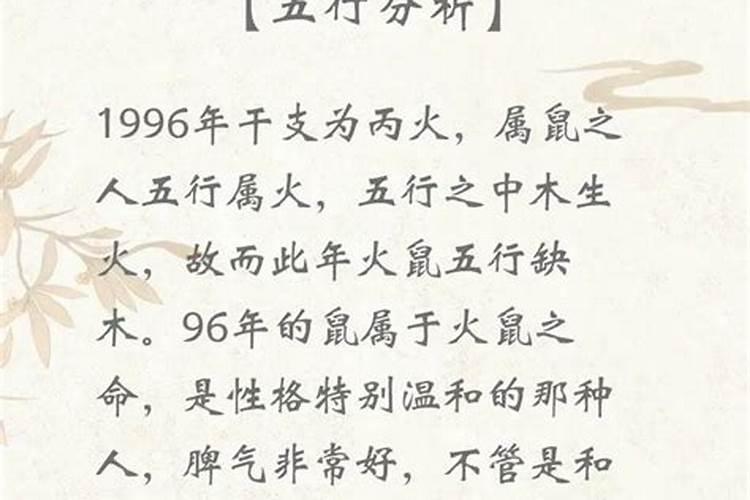 【五行分析】
1996年干支为丙火，属鼠之
人五行属火，五行之中木生
火，故而此年火鼠五行缺
木。96年的鼠属于火鼠之
命，是性格特别温和的那种
人，脾气非常好，不管是和